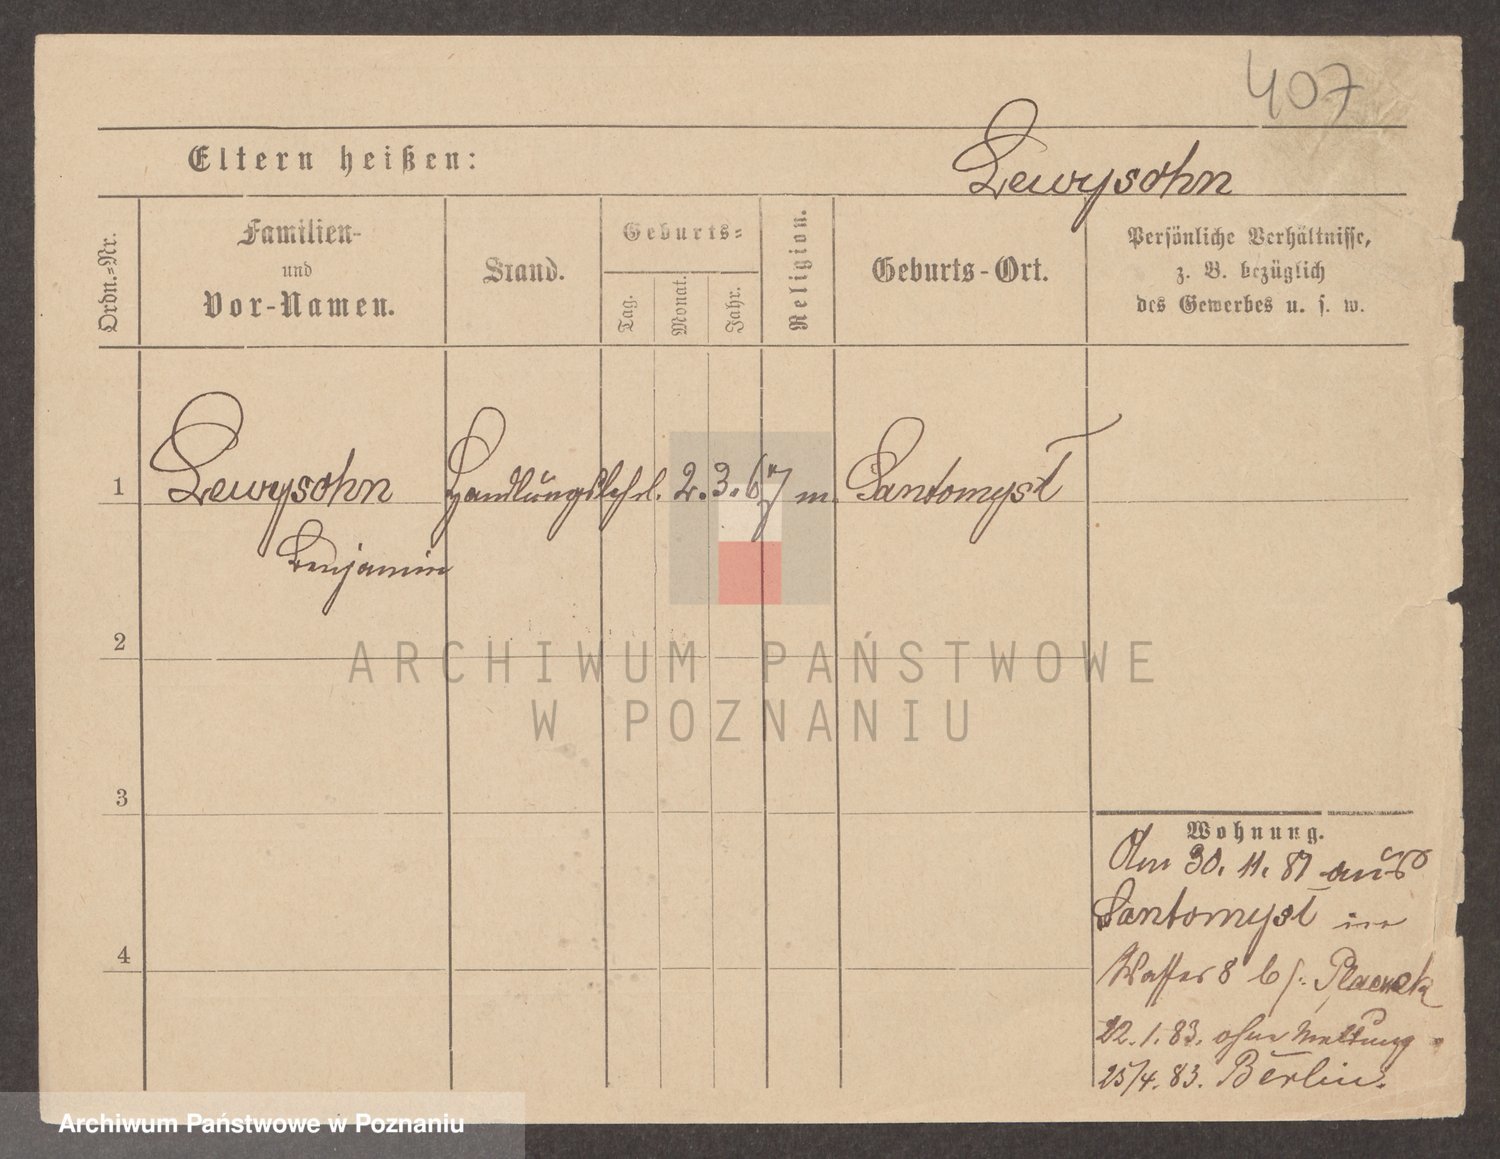 407
Eltern heißen: Lewysohn
Ordn.-Nr.
Familien-
und
Vor-Namen.
Stand.
Geburts-
Tag.
Monat.
Jahr.
Religion.
Geburts-Ort.
Persönliche Verhältnisse,
z. B. bezüglich
des Gewerbes u. s. w.
1 Lewysohn Handlungslehrl. 2. 3. 67 m. Santomysl
Benjamin
2
3
4
Wohnung.
Den 30. 11. 81 aus
Santomysl in
Wasser 8 b/. Placzek
22. 1. 83. ohne Meldung
25/4. 83. Berlin.
ARCHIWUM PAŃSTWOWE
W POZNANIU
Archiwum Państwowe w Poznaniu